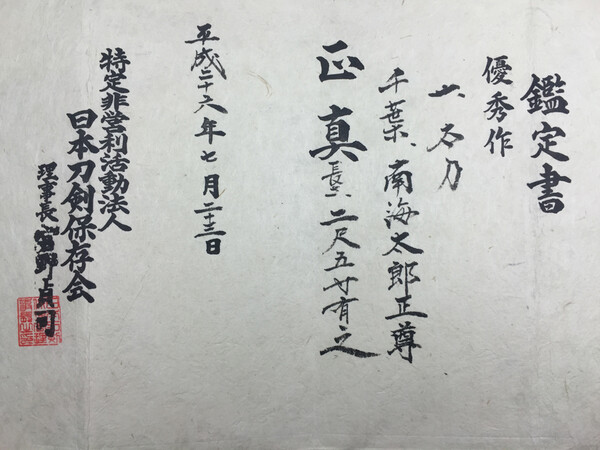 鑑定書
優秀作
一、太刀
千葉、南海太郎正尊
正真
長、二尺五寸有之
平成二十六年七月二十三日
特定非営利活動法人
日本刀剣保存会
理事長 野 司